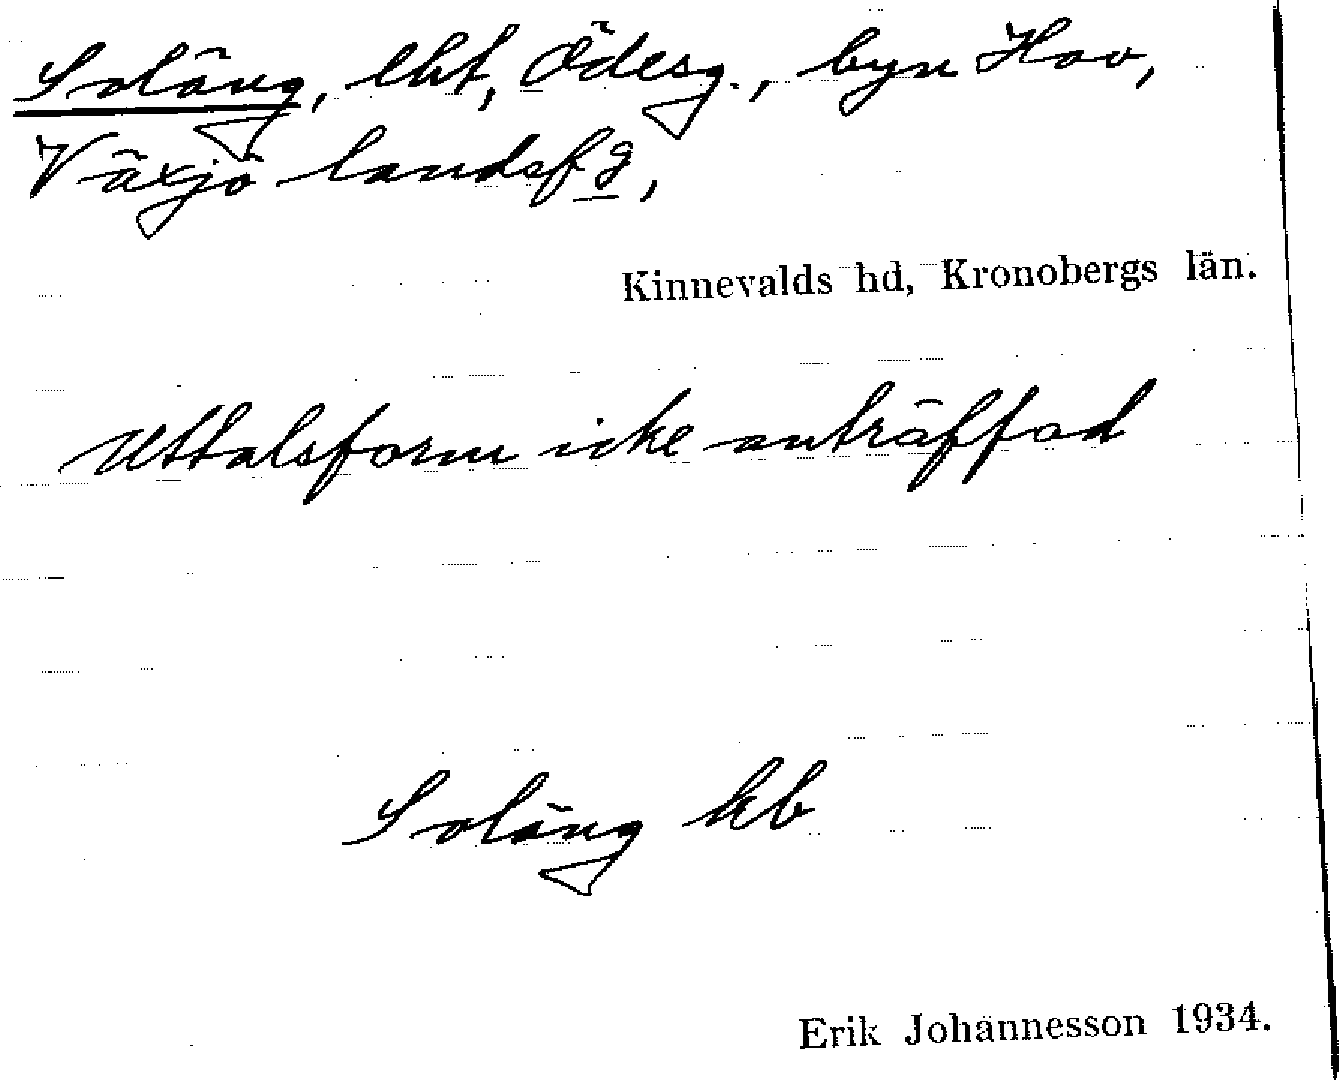 Soläng, lht, Ödesg., byn Hov,
Växjö landsfg,
Kinnevalds hd, Kronobergs län.
Uttalsform icke anträffad
Soläng kb
Erik Johannesson 1934.